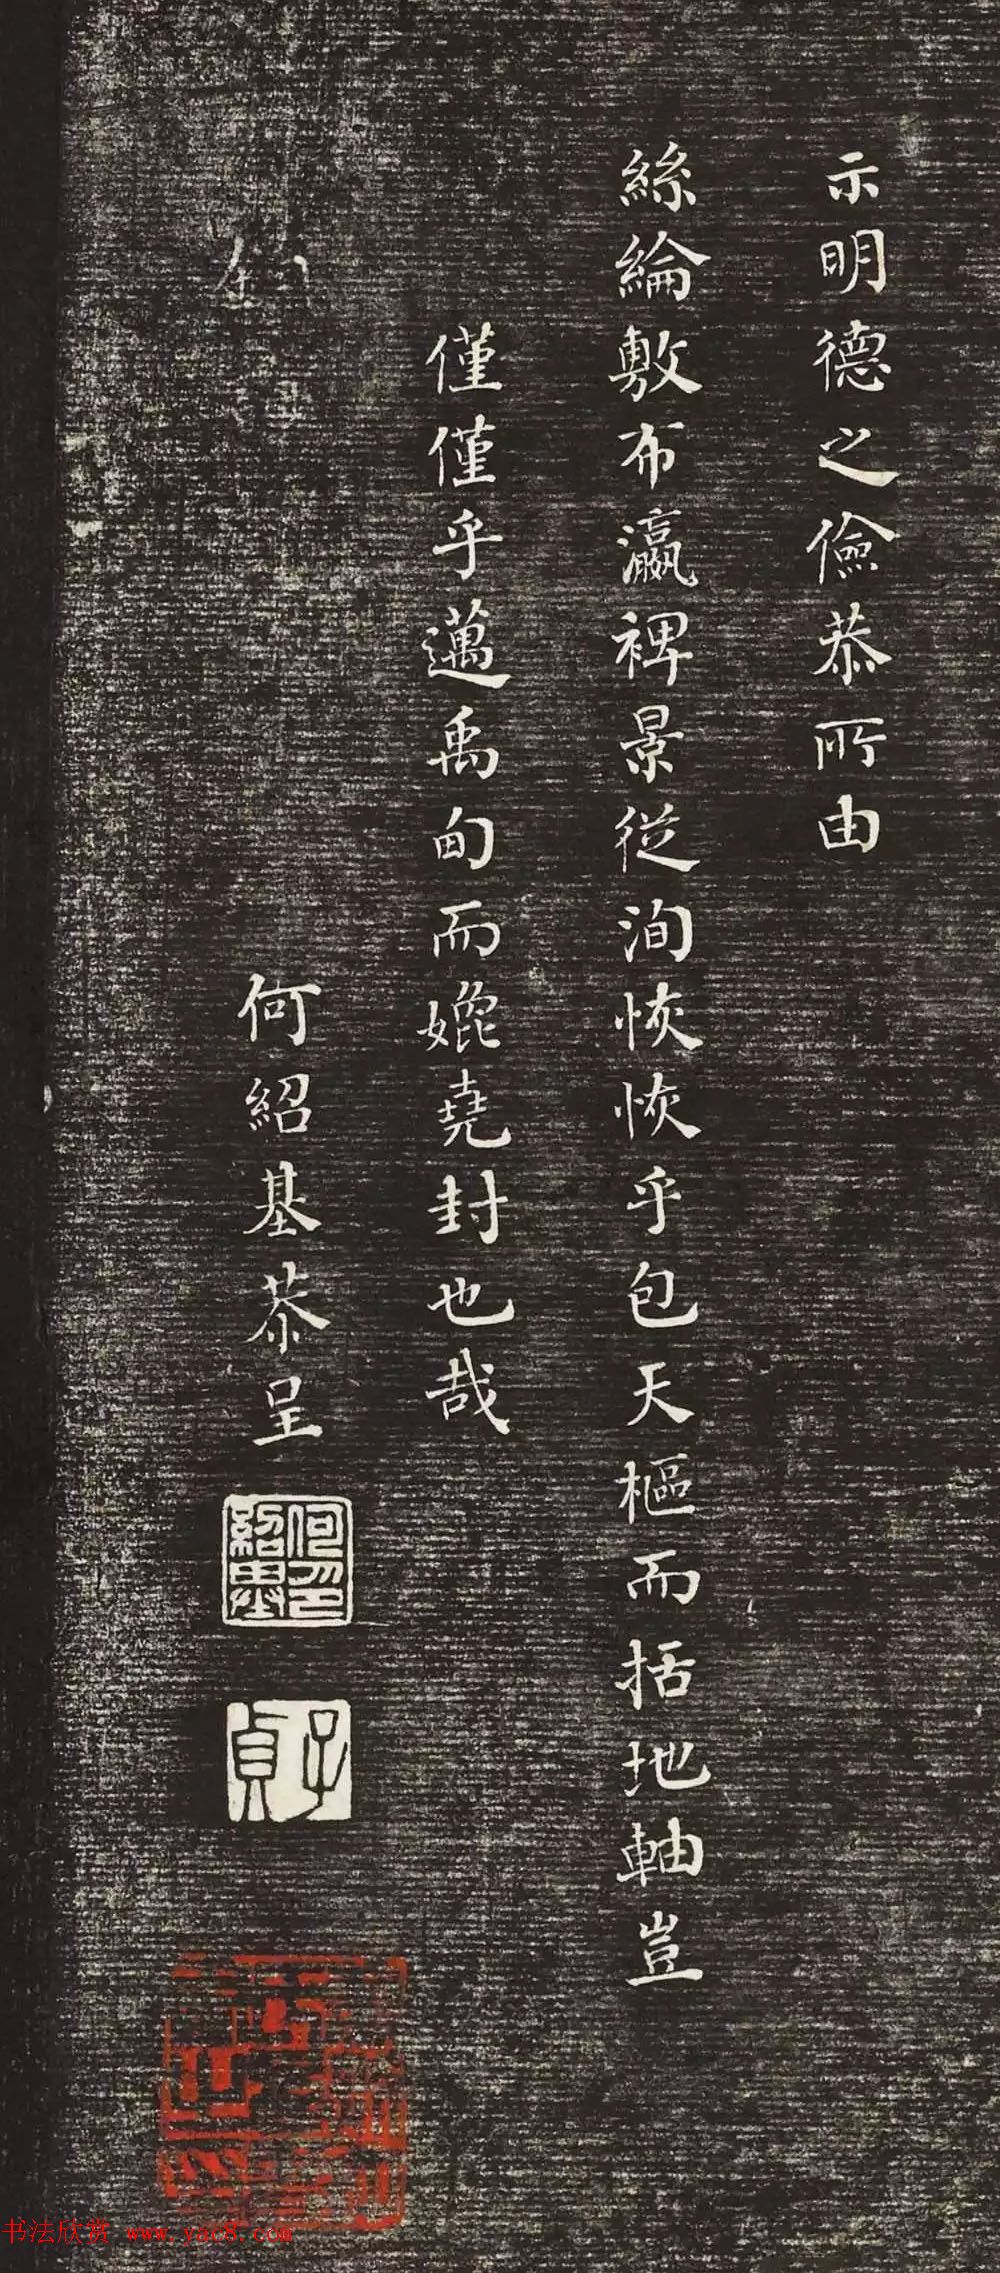 示明德之儉恭所由
絲綸敷布瀛裨景從洵恢恢乎包天樞而括地軸豈
僅僅乎邁禹甸而媲堯封也哉
何紹基恭呈
何紹基印
子貞
书法欣赏 www.yac8.com